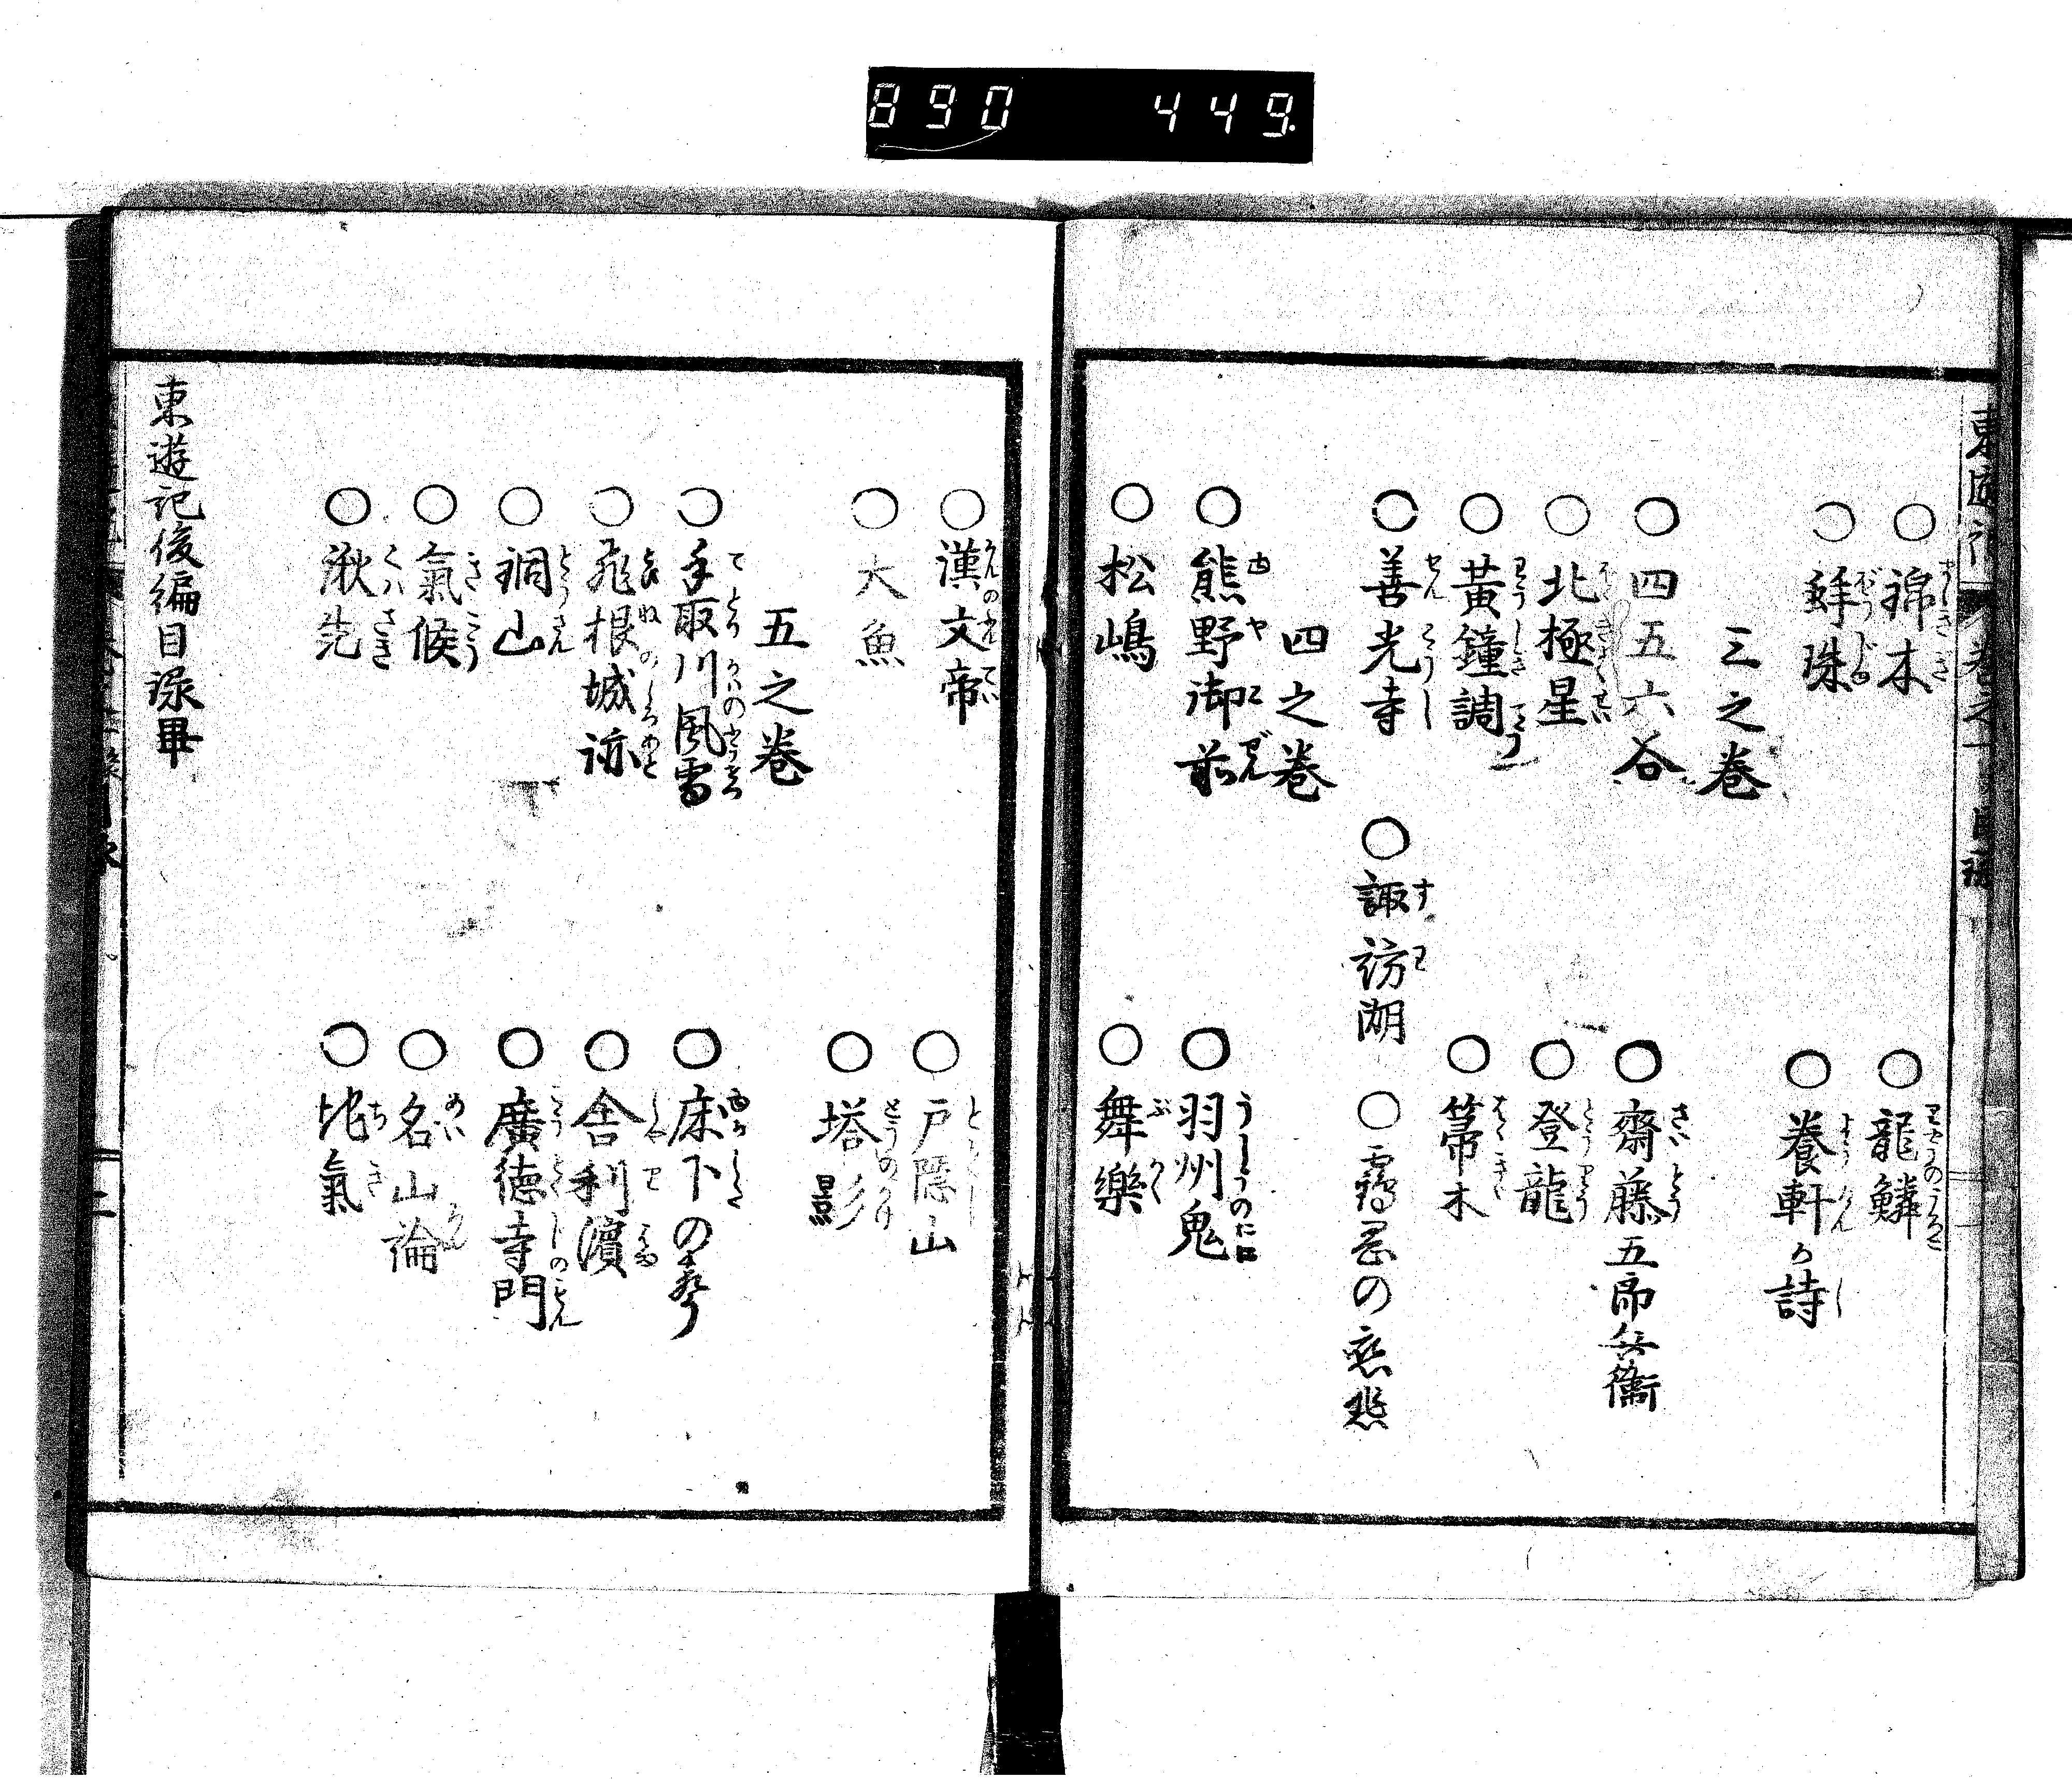 890 449.
○錦木
○龍鱗
○蚌珠
○養軒か詩
三之巻
○四五六谷
○齋藤五郎兵衞
○北極星
○登龍
○黃鐘調
○箒木
○善光寺
○諏訪湖
○靏忍の恋愁
四之巻
○熊野御前
○羽州鬼
○松嶋
○舞樂
○漢文帝
○戸隠山
○大魚
○塔影
五之巻
○手取川風雪
○床下の聲
○飛根城跡
○舎利濱
○銅山
○廣徳寺門
○氣候
○名山論
○湫先
○地氣
東遊記後編目録畢